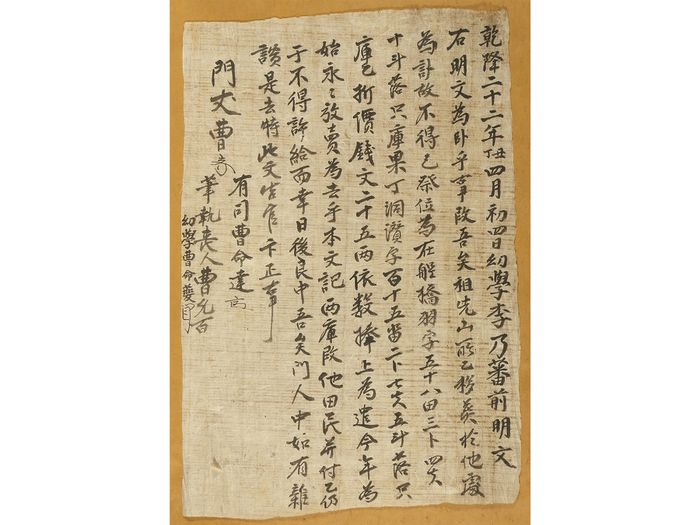 乾隆二十二年丁丑四月初四日幼學李乃蕃前明文
右明文為臥乎事段吾矣祖先山所乙移葬於他處
為計故不得已祭位為在船橋羽字五十八田三卜四夫
十斗落只庫果丁洞讃字百十五畓二卜七夫五斗落只
庫乙折價錢文二十五兩依數捧上為遣今年為
始永〻放賣為去乎本文記段他田民并付乙仍
于不得許給而幸日後良中吾矣門人中如有雜
談是去等此文告官卞正事
門丈曹
有司曹命達
筆執喪人曹允百
幼學曹命夔